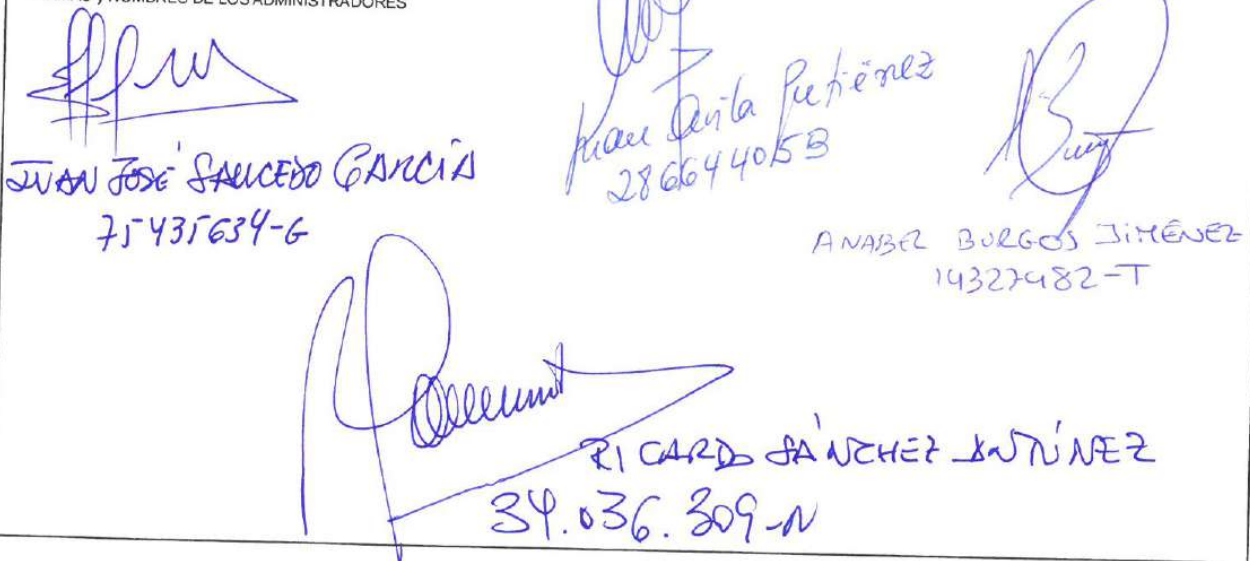 NOMBRES DE LOS ADMINISTRADORES
JUAN JOSÉ SAUCEDO GARCÍA
75435634-G
Juan Dávila Gutiérrez
28664405B
ANABEL BURGOS JIMÉNEZ
14327482-T
RICARDO SÁNCHEZ ANTÚNEZ
34.036.309-N